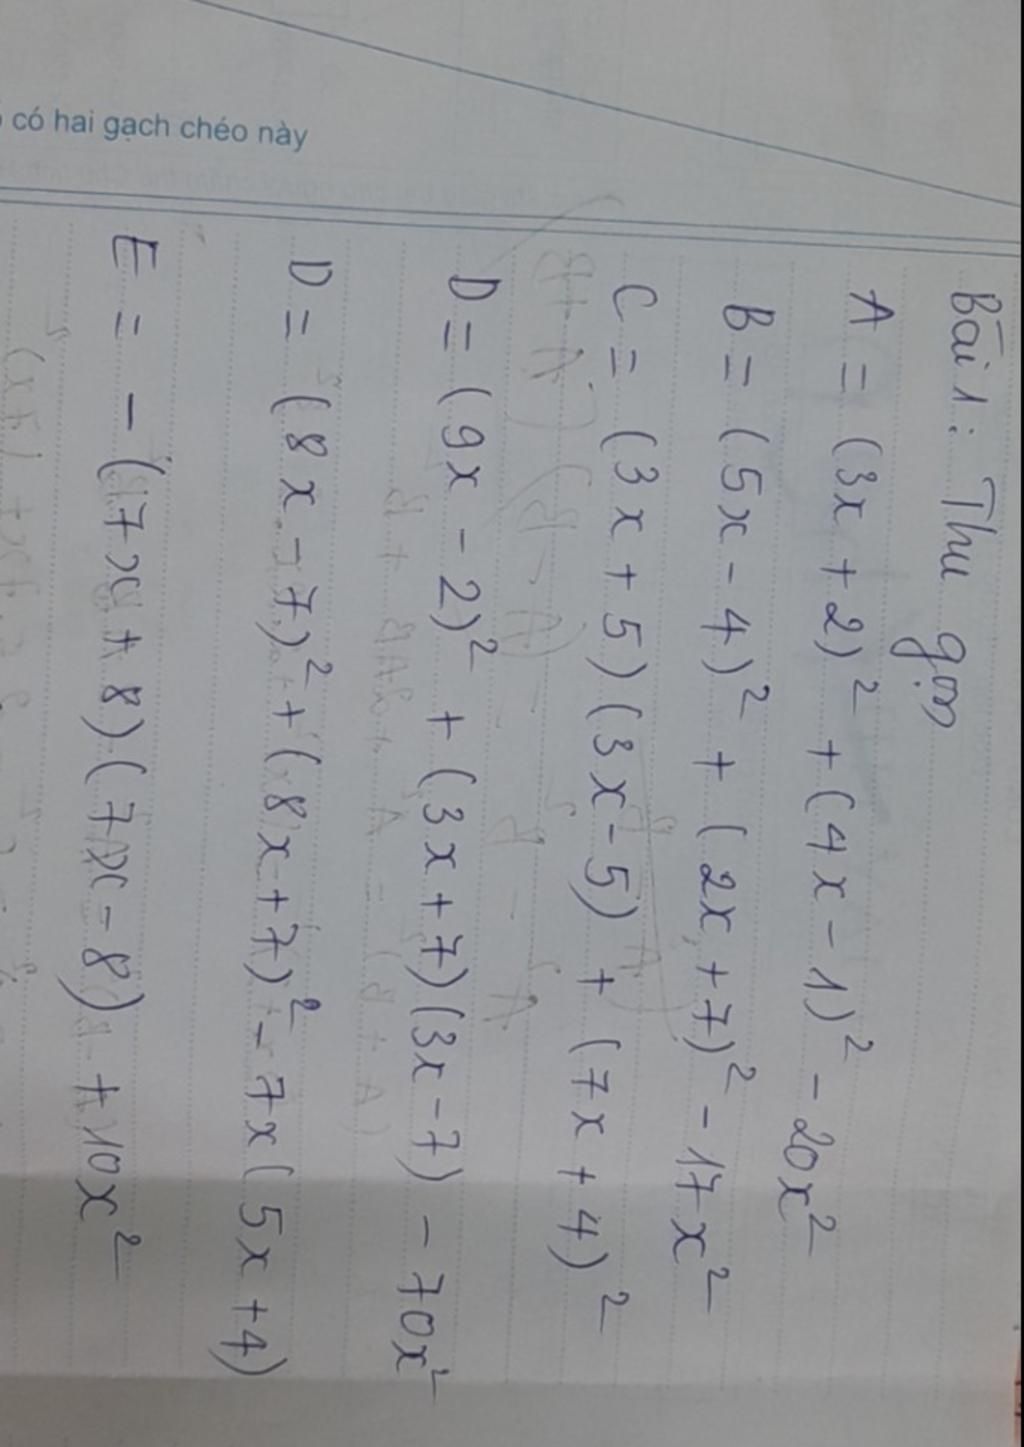 có hai gạch chéo này
Bài 1: Thu gọn
A = (3x + 2)² + (4x - 1)² - 20x²
B = (5x - 4)² + (2x + 7)² - 17x²
C = (3x + 5)(3x - 5) + (7x + 4)²
D = (9x - 2)² + (3x + 7)(3x - 7) - 70x²
D = (8x - 7)² + (8x + 7)² - 7x(5x + 4)
E = - (7x + 8)(7x - 8) + 10x²